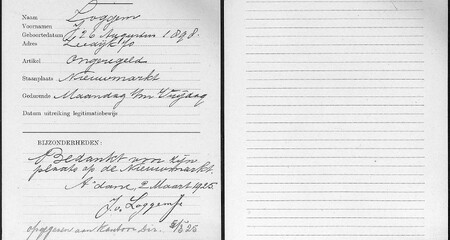 Naam Loggem
Voornamen J.
Geboortedatum 26 Augustus 1898.
Adres Zeedijk 70
Artikel ongeregeld
Staanplaats Nieuwmarkt
Gedurende Maandag t/m Vrijdag
Datum uitreiking legitimatiebewijs
BIJZONDERHEDEN:
Bedankt voor zijn
plaats op de Nieuwmarkt.
A'dam, 2 Maart 1925.
J. v. Loggem
opgegeven aan Kantoor